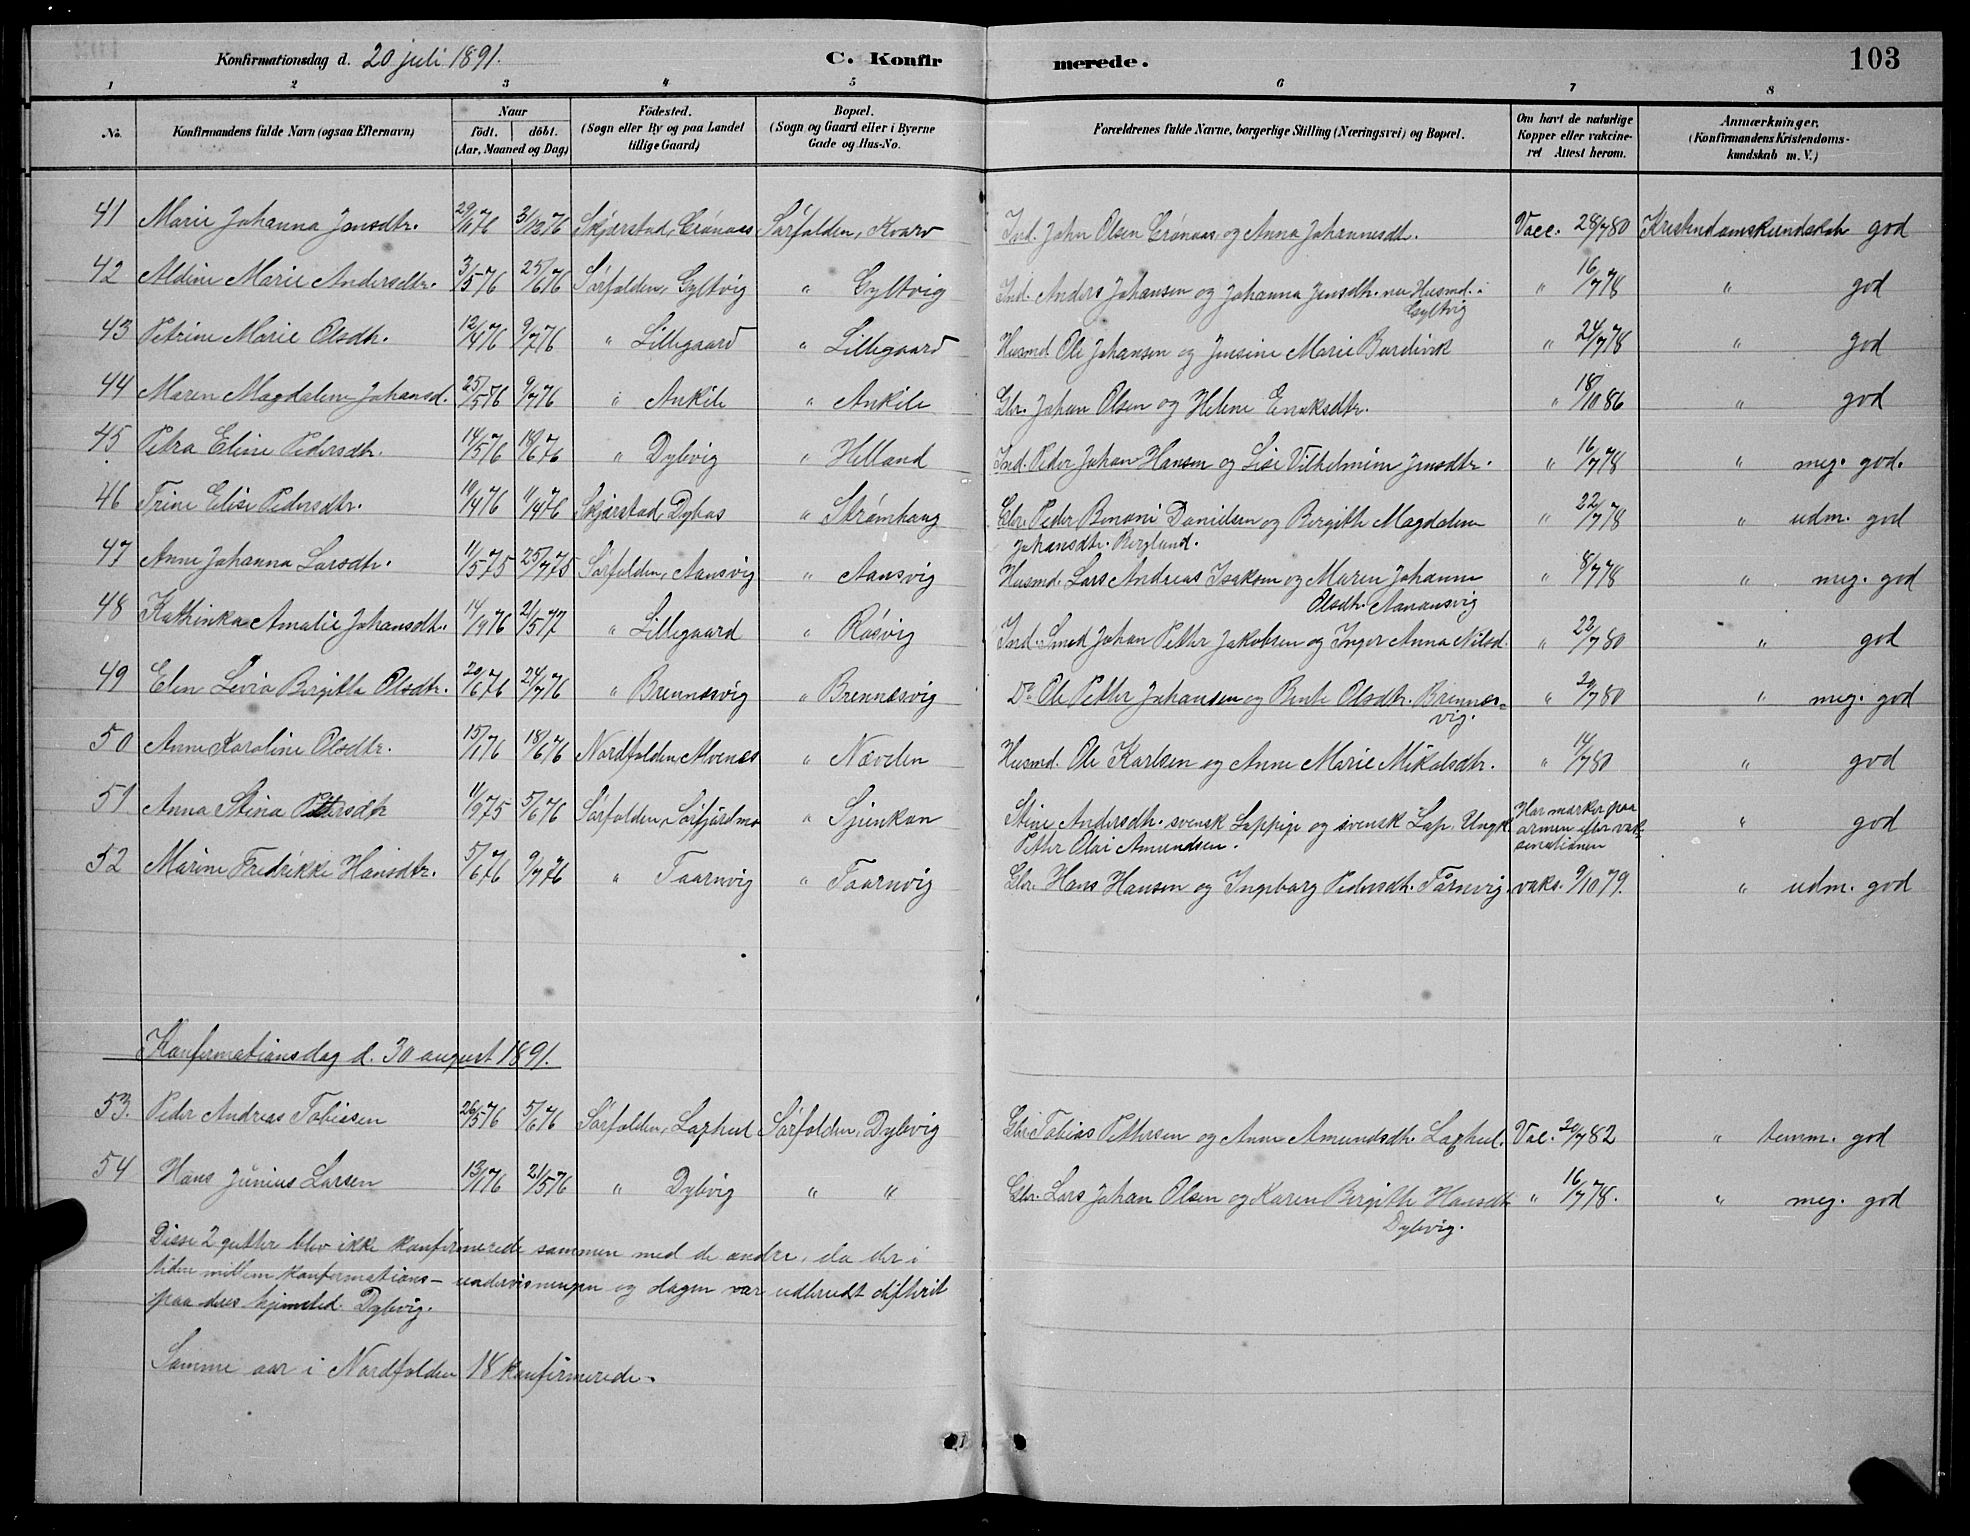 Konfirmationsdag d. 20 juli 1891. C. Konfirmerede. 103
1 2 3 4 5 6 7 8
No. Konfirmandens fulde Navn (ogsaa Efternavn) Naar födt. döbt. (Aar, Maaned og Dag) Födested. (Sogn eller By og paa Landet tillige Gaard) Bopæl. (Sogn og Gaard eller i Byerne Gade og Hus-No. Forældrenes fulde Navne, borgerlige Stilling (Næringsvei) og Bopæl. Om havt de naturlige Kopper eller vakcineret Attest herom. Anmærkninger. (Konfirmandens Kristendomskundskab m. V.)
41 Marie Johanna Jensdtr. 3/12 76 Skjærstad, Grønaas Sørfolden, Kvarv Ind. John Olsen Grønaas og Anna Johannesdtr. Vacc. 28/7 80 Kristendomskundskab god
42 Aldine Marie Andersdtr. 3/5 76 25/6 76 Sørfolden, Gyltvig " Gyltvig Ind. Anders Johansen og Johanna Jensdtr. nu Husmd. i Gyltvig " 16/7 78 " god
43 Petrine Marie Olsdtr. 12/4 76 9/7 76 " Lillegaard " Lillegaard Husmd Ole Johansen og Jensine Marie " 24/7 78 " god
44 Maren Magdalene Johansd. 25/5 76 9/7 76 " Ankile " Ankile Gbr. Johan Olsen og Helene Enoksdtr. " 18/10 86 " god
45 Petra Eline Pedersdtr. 14/5 76 18/6 76 " Dybvig " Helland Ind. Peder Johan Hansen og Lise Vilhelmine Jensdtr. " 16/7 78 " meg. god.
46 Trine Elise Pedersdtr. Skjærstad, " Strømhaug Gbr. Peder Benoni Danielsen og Bergithe Magdalene Johansdtr. Berglund. " 22/7 78 " udm. god
47 Anne Johanna Larsdtr. 11/5 75 25/7 75 Sørfolden, Aansvig " Aansvig Husmd. Lars Andreas Isaksen og Maren Johanne Olsdtr. " 8/7 78 " meg. god
48 Kathinka Amalie Johansdtr. 21/5 77 " Lillegaard " Røsvig Ind. Smed Johan Petter Jakobsen og Inger Anna Nilsd. " 22/7 80 " god
49 Elen Levia Birgitte Olsdtr. 20/6 76 24/7 76 " Brennesvig " Brennesvig Do Ole Petter Johansen og Bente Olsdtr. Brennesvig. " 20/7 80 " meg. god
50 Anne Karoline Olsdtr. 15/1 76 18/6 76 Nordfolden, Alvenes " Nævelen Husmd. Ole Karlsen og Anne Marie Mikalsdtr. " 14/7 80 " god
51 Anna Stina Pettersdtr 11/9 75 5/6 76 Sørfolden, Sørfjordmo " Sjunkan Stine Andersdtr. svensk Lappige og svensk Lap. Ungk. Petter Olai Amundsen. Har mærker paa armen efter vaksinationen " god
52 Marine Fredrikke Hansdtr. 5/6 76 9/7 76 " Taarnvig " Taarnvig Gbr. Hans Hansen og Ingeborg Pedersdtr. Tårnvig. vaks. 9/10 79. " udm. god
Konfirmationsdag d. 30 august 1891.
53. Peder Andreas Tobiesen 26/5 76 5/6 76 Sørfolden, Laghul Sørfolden, Dybvig Gbr. Tobias Pettersen og Anne Amundsdtr. Laghul. Vac. 20/7 82 " temm. god
54 Hans Junius Larsen 13/1 76 21/5 76 " Dybvig " " Gbr. Lars Johan Olsen og Karen Birgitte Hansdtr Dybvig. " 16/7 78. " meg. god
Disse 2 gutter blev ikke konfirmerede sammen med de andre, da der i
tiden mellem konfirmations-undervisningen og dagen var udbrudt difterit
paa deres hjemsted Dybvig.
Samme aar i Nordfolden 18 konfirmerede.